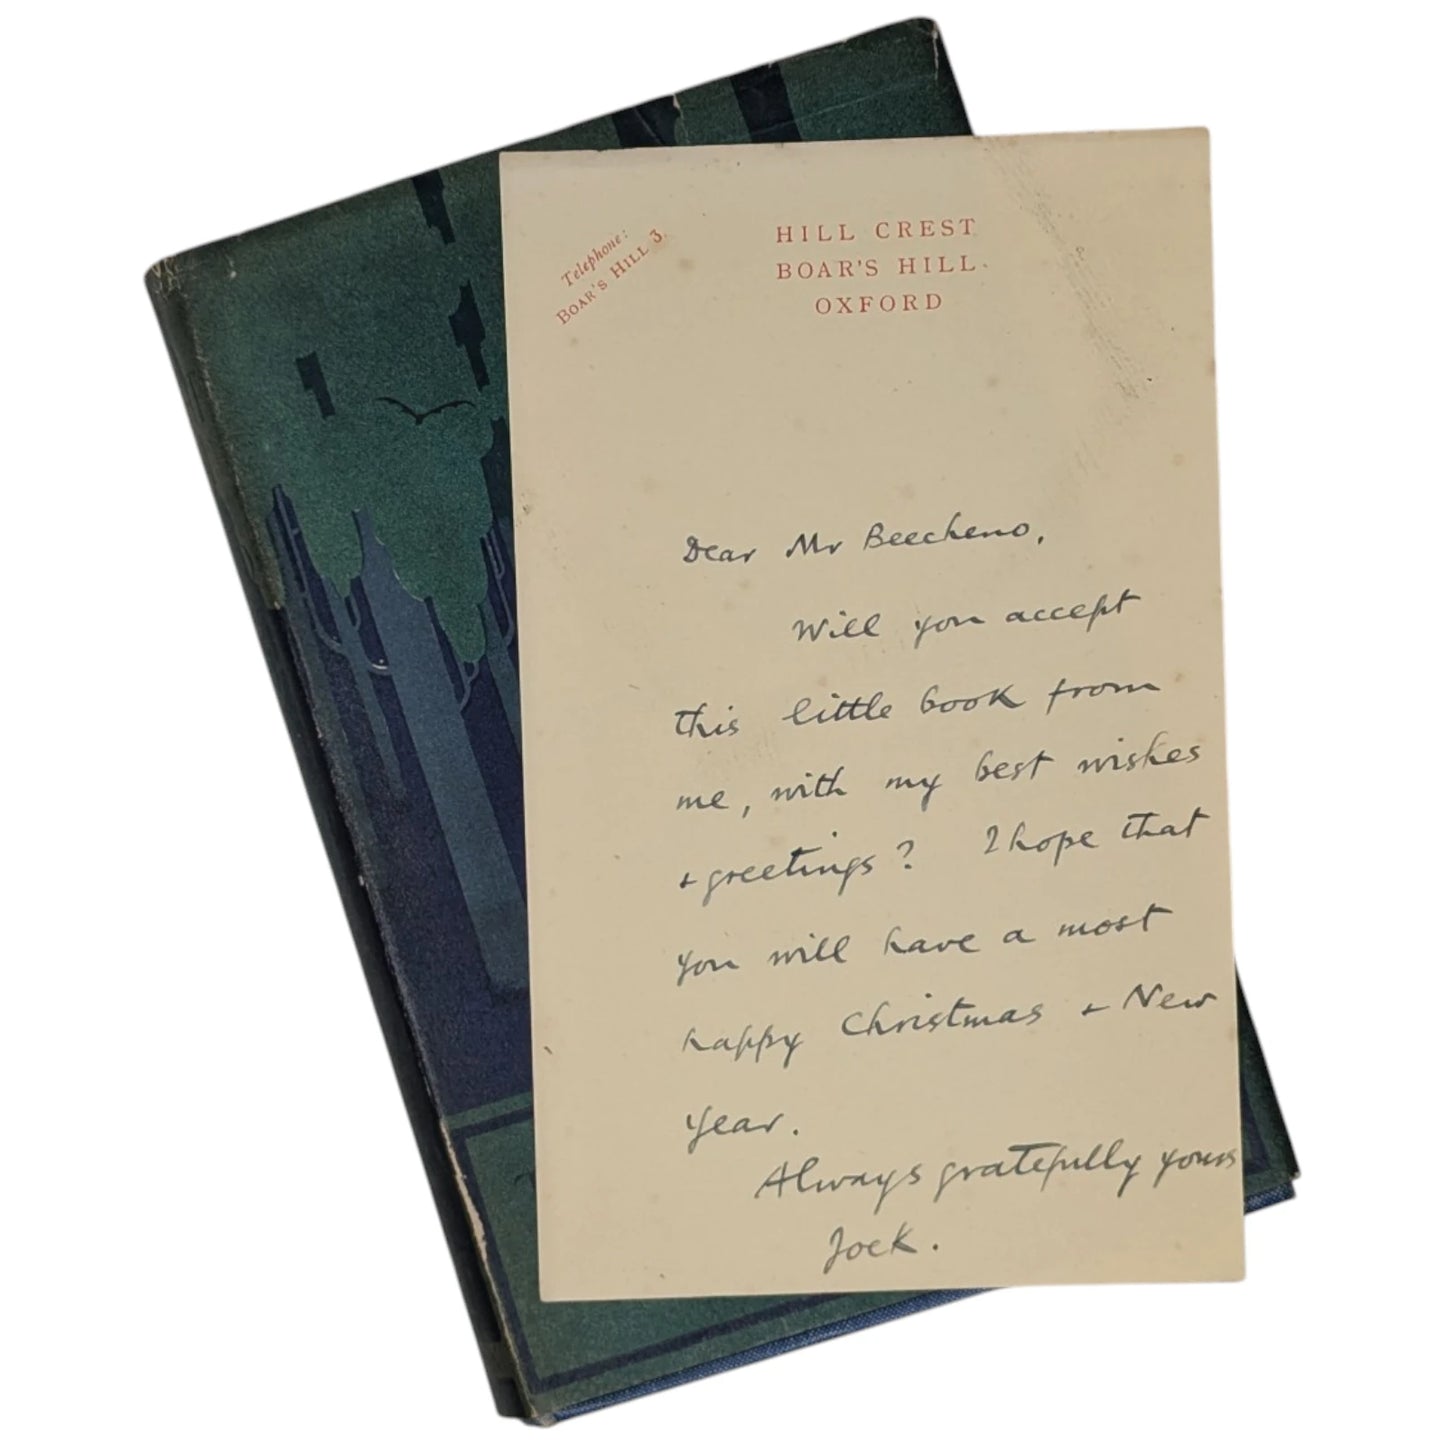 Telephone:
BOAR'S HILL 3.
HILL CREST
BOAR'S HILL.
OXFORD
Dear Mr Beecheno,
Will you accept
this little book from
me, with my best wishes
+ greetings? I hope that
you will have a most
happy Christmas + New
Year.
Always gratefully yours
Jock.